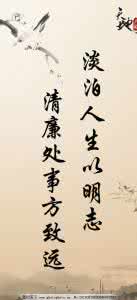 淡泊人生以明志
清廉处事方致远